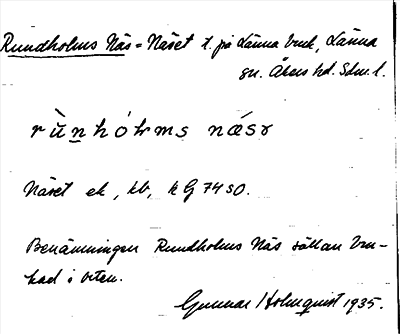 Rundholms Näs = Näset t. på Länna bruk, Länna
sn. Åkers hd. Sdm. l.
rùn̲hólms næsr
Näset ek, kb, k G 74 SO.
Benämningen Rundholms Näs sällan bru-
kad i orten.
Gunnar Holmquist 1935.